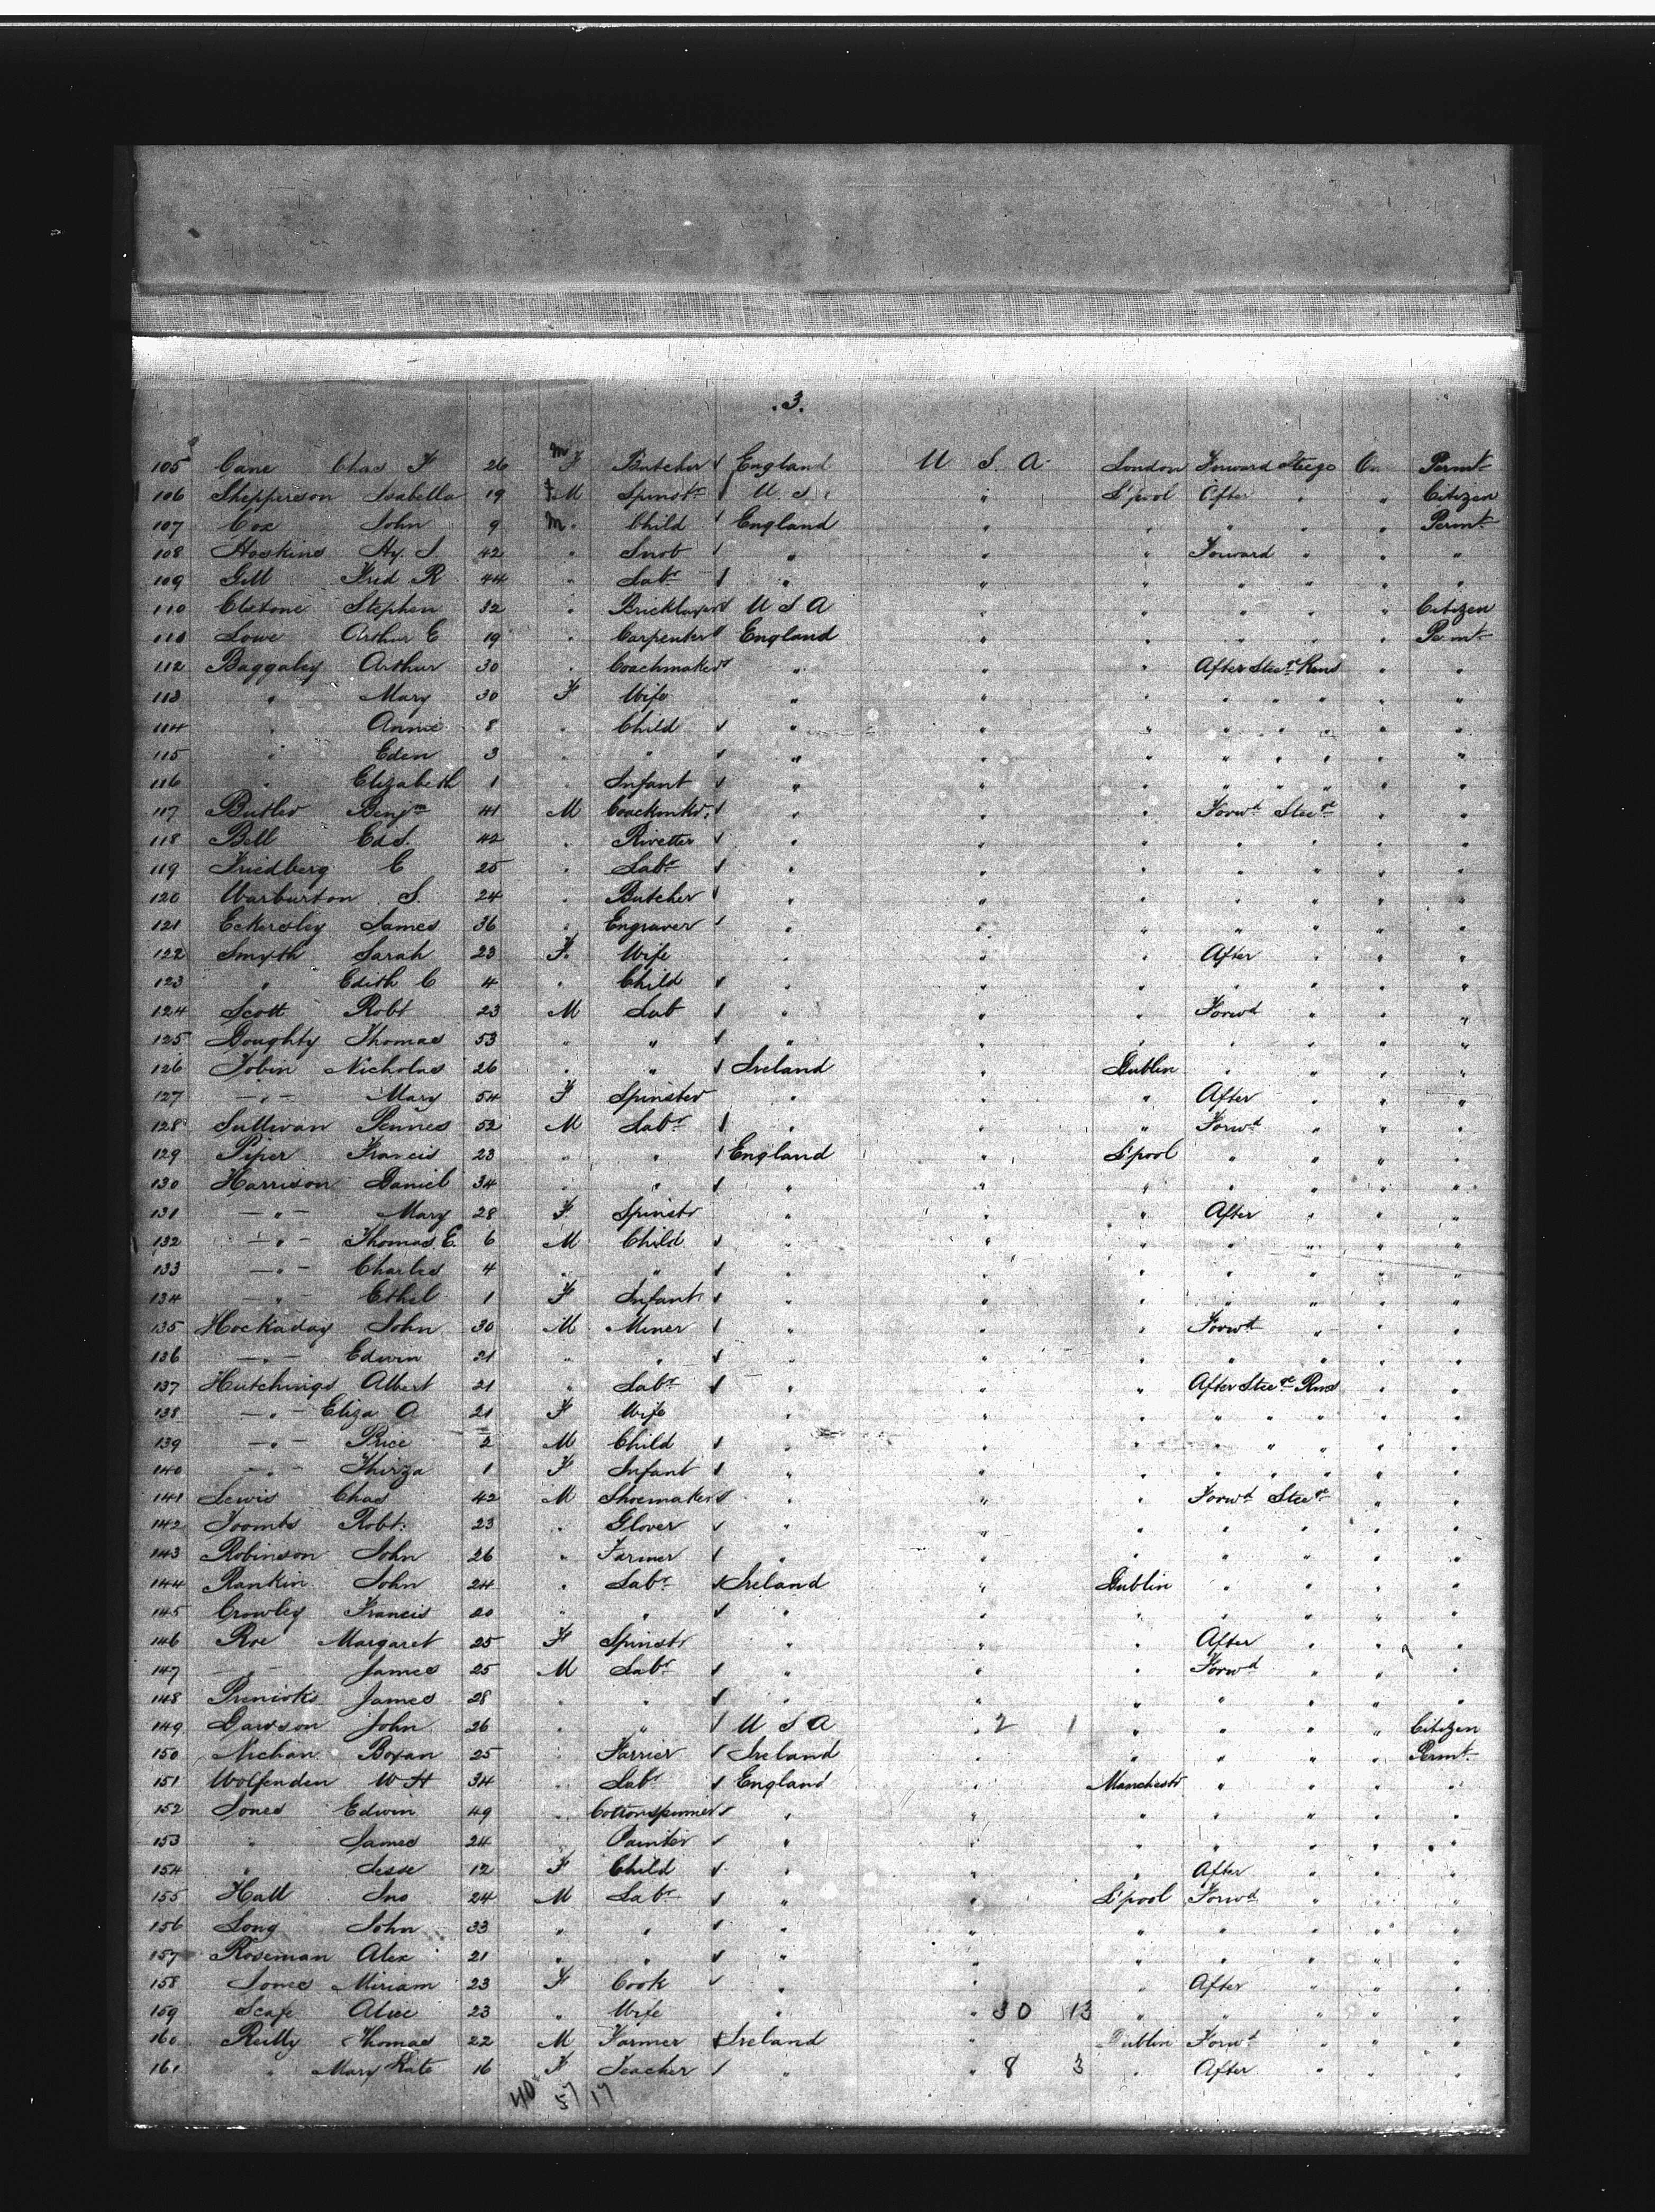 .3.
105 Cane Chas F 26 m F Butcher England U S. A. London Forward Steege On Permt
106 Shepperson Isabella 19 f M Spinstr U S " L'pool After " " Citizen
107 Cox John 9 m " Child England " " " " " Permt
108 Hoskins Hy. S. 42 " Snob " " " Forward " " "
109 Gill Fred R 44 " Labr " " " " " " "
110 Elstone Stephen 32 " Bricklayer U S A " " " " " Citizen
110 Lowe Arthur E 19 " Carpenter England " " " " " Permt
112 Baggaley Arthur 30 " Coachmaker " " " After Steere Rms " "
113 " Mary 30 F Wife " " " " " " " "
114 " Annie 8 " Child " " " " " " " "
115 " Eden 3 " " " " " " " " " "
116 " Elizabeth 1 " Infant " " " " " " " "
117 Butler Benjn 41 M Coachmkr. " " " Forwd Steere " "
118 Bell Ed S. 42 " Rivetter " " " " " " "
119 Friedberg E 25 " Labr " " " " " " "
120 Warburton S. 24 " Butcher " " " " " " "
121 Eckersley James 36 " Engraver " " " " " " "
122 Smyth Sarah 23 F. Wife " " " After " " "
123 " Edith C 4 " Child " " " " " " "
124 Scott Robt 23 M Lab " " " Forwd " " "
125 Doughty Thomas 53 " " " " " " " " "
126 Tobin Nicholas 26 " " Ireland " Dublin " " " "
127 – " – Mary 54 F Spinster " " " After " " "
128 Sullivan 52 M Labr " " " Forwd " " "
129 Piper Francis 23 " " England " L'pool " " " "
130 Harrison Daniel 34 " " " " " " " " "
131 – " – Mary 28 F Spinstr " " " After " " "
132 – " – Thomas E. 6 M Child " " " " " " "
133 – " – Charles 4 " " " " " " " " "
134 – " – Ethel 1 F Infant " " " " " " "
135 Hockaday John 30 M Miner " " " Forwd " " "
136 – " – Edwin 21 " " " " " " " " "
137 Hutchings Albert 21 " Labr " " " After Steere Rms " "
138 – " – Eliza A 21 F Wife " " " " " " " "
139 – " – Price 2 M Child " " " " " " " "
140 – " – Thirza 1 F Infant " " " " " " " "
141 Lewis Chas 42 M Shoemaker " " " Forwd Steere " "
142 Toombs Robt. 23 " Glover " " " " " " "
143 Robinson John 26 " Farmer " " " " " " "
144 Rankin John 24 " Labr Ireland " Dublin " " " "
145 Crowley Francis 20 " " " " " " " " "
146 Roe Margaret 25 F Spinstr " " " After " " "
147 – " – James 25 M Labr " " " Forwd " " "
148 James 28 " " " " " " " " "
149 Dawson John 26 " " U S A " 2 1 " " " " Citizen
150 25 " Farrier Ireland " " " " " Permt
151 Wolfenden W H 34 " Labr England " Manchestr " " " "
152 Jones Edwin 49 " Cottonspinner " " " " " " "
153 " James 24 " Painter " " " " " " "
154 " Jesse 12 F Child " " " After " " "
155 Hall Jno 24 M Labr " " L'pool Forwd " " "
156 Long John 33 " " " " " " " " "
157 Roseman Alex 21 " " " " " " " " "
158 Jones Miriam 23 F Cook " " " After " " "
159 Scafe Alice 23 " Wife " " 30 13 " " " " "
160 Reilly Thomas 22 M Farmer Ireland " Dublin Forwd " " "
161 " Mary Kate 16 F Teacher " " 8 3 " After " " "
40 57 17